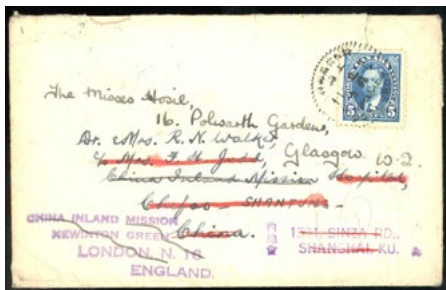 The Misses
16. Polwarth Gardens,
Dr. & Mrs. R. N. Walker,
c/o Mrs. F. H. Judd, Glasgow W-2.
China Inland Mission Hospital,
Chefoo - SHANTUNG -
China.
CHINA INLAND MISSION
NEWINGTON GREEN
LONDON, N. 16
ENGLAND.
1531, SINZA RD.,
SHANGHAI, KU.
5 5